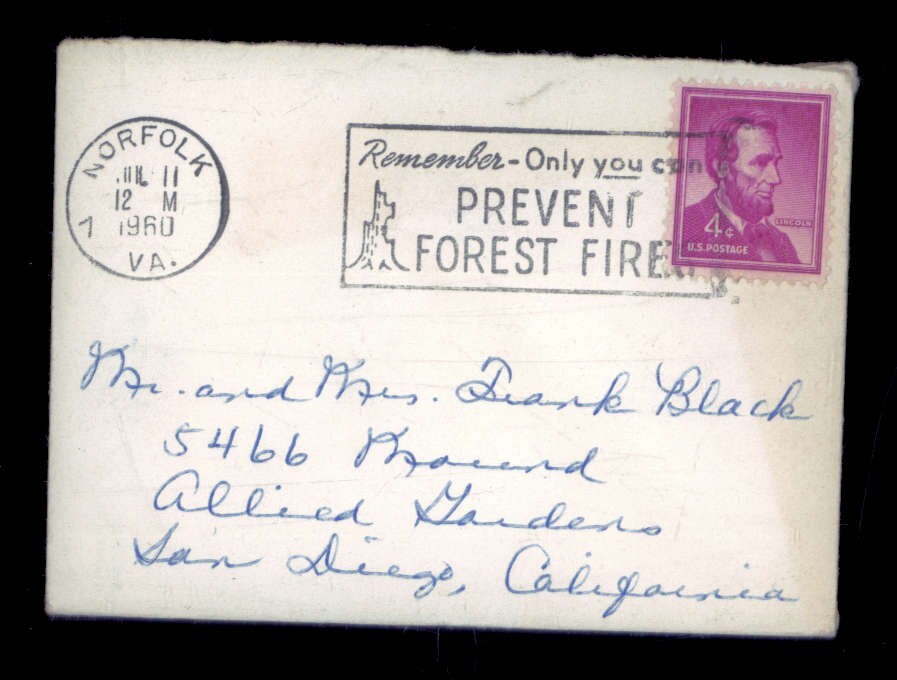 NORFOLK
JUL 11
12 M
1960
VA.
Remember - Only you can
PREVENT
FOREST FIRES
LINCOLN
4¢
U.S. POSTAGE
Mr. and Mrs. Frank Black
5466 Mound
Allied Gardens
San Diego, California